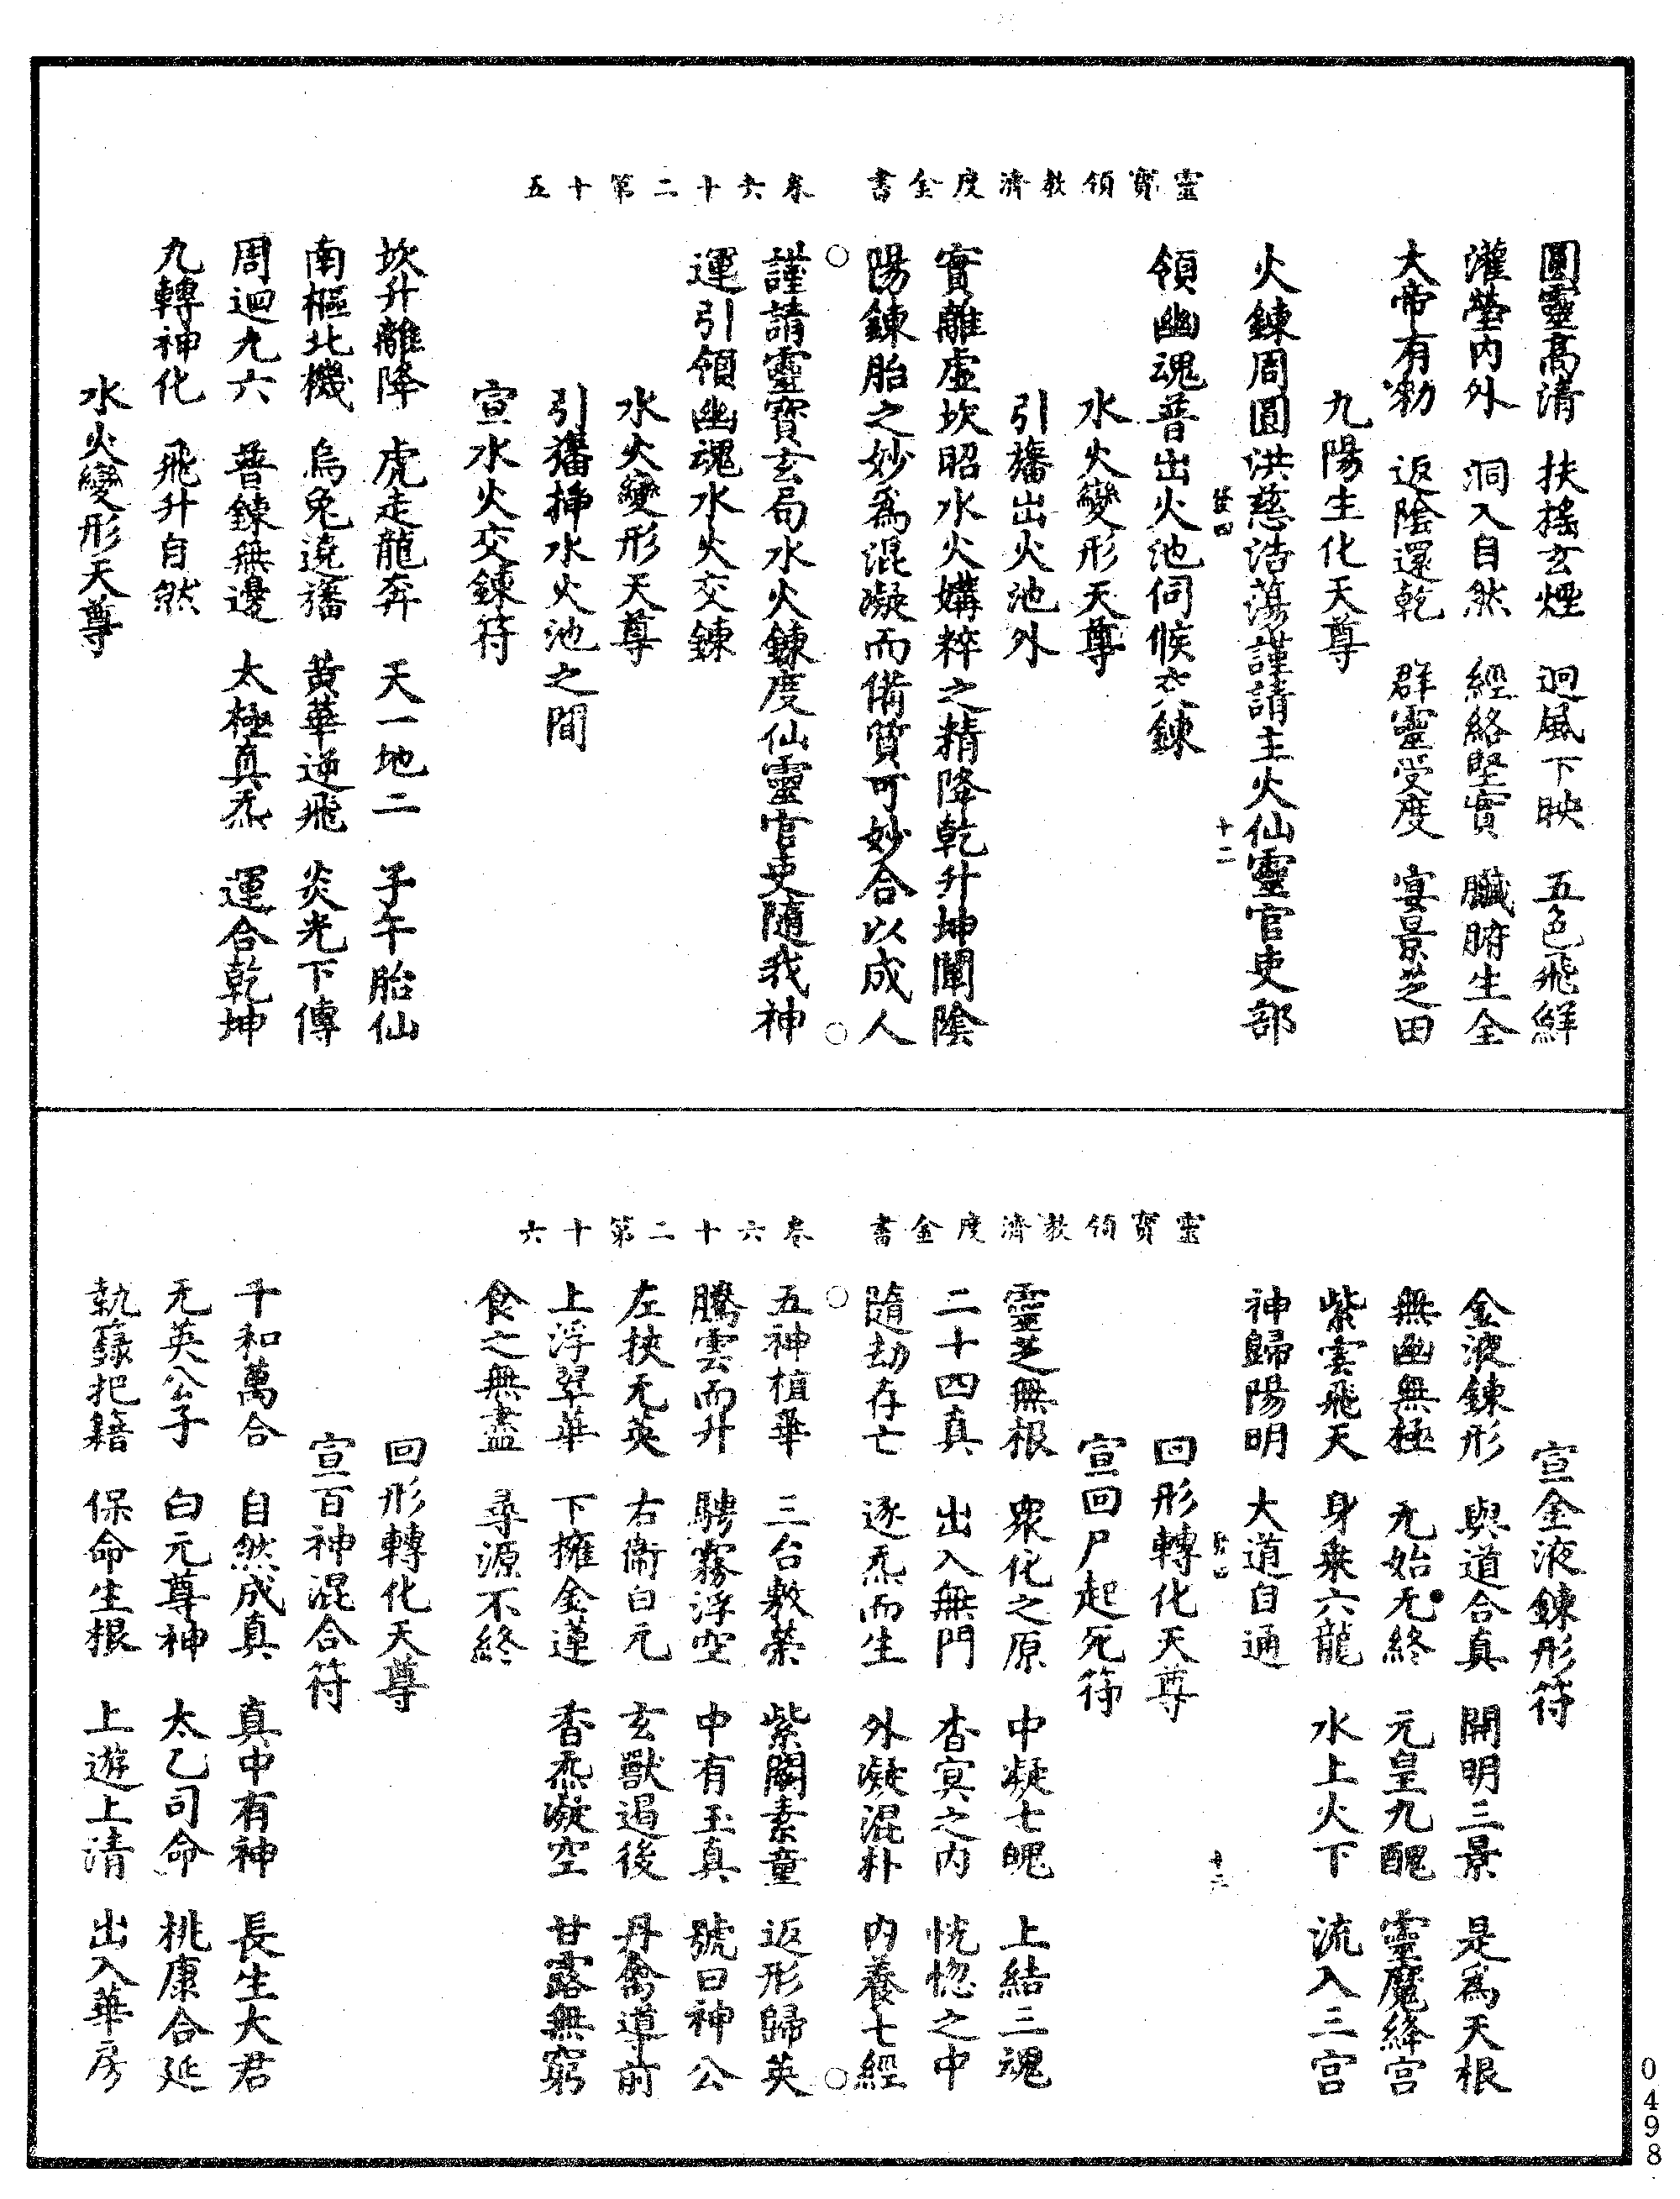 靈寶領教濟度金書　卷六十二第十五
圓靈高清　扶搖玄煙　迴風下映　五色飛鮮
灌瑩內外　洞入自然　經絡堅實　臟腑生全
大帝有勑　返陰還乾　群靈受度　宴景芝田
九陽生化天尊
火鍊周圓洪慈浩蕩謹請主火仙靈官吏部
十二
領幽魂普出火池伺候交鍊
水火變形天尊
引旛出火池外
實離虛坎昭水火媾粹之精降乾升坤闡陰
陽鍊胎之妙爲混凝而備質可妙合以成人
謹請靈寶玄局水火鍊度仙靈官吏隨我神
運引領幽魂水火交鍊
水火變形天尊
引旛揷水火池之間
宣水火交鍊符
坎升離降　虎走龍奔　天一地二　子午胎仙
南樞北機　烏兔遶旛　黃華逆飛　炎光下傳
周迴九六　普鍊無邊　太極真炁　運合乾坤
九轉神化　飛升自然
水火變形天尊
靈寶領教濟度金書　卷六十二第十六
宣金液鍊形符
金液鍊形　與道合真　開明三景　是爲天根
無幽無極　无始无終　元皇九醜　靈魔絳宮
紫雲飛天　身乘六龍　水上火下　流入三宮
神歸陽明　大道自通
十三
回形轉化天尊
宣回尸起死符
靈芝無根　眾化之原　中凝七魄　上結三魂
二十四真　出入無門　杳冥之內　恍惚之中
隨劫存亡　逐炁而生　外凝混朴　內養七經
五神植華　三台敷榮　紫闕素童　返形歸英
騰雲而升　騁霧浮空　中有玉真　號曰神公
左挾无英　右衞白元　玄獸遏後　丹禽導前
上浮翠華　下擁金蓮　香炁凝空　甘露無窮
食之無盡　尋源不終
回形轉化天尊
宣百神混合符
千和萬合　自然成真　真中有神　長生大君
无英公子　白元尊神　太乙司命　桃康合延
執籙把籍　保命生根　上遊上清　出入華房
0498